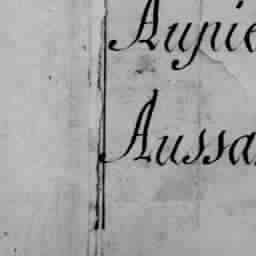 Aupie
Aussa